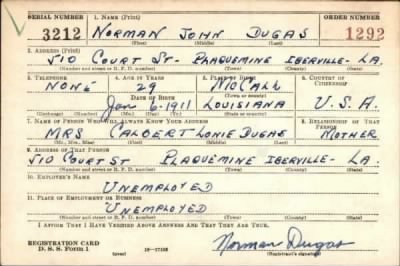 SERIAL NUMBER 1. NAME (Print) ORDER NUMBER
3212 NORMAN JOHN DUGAS 1292
(First) (Middle) (Last)
2. ADDRESS (Print)
510 COURT ST- PLAQUEMINE IBERVILLE- LA.
(Number and street or R. F. D. number) (Town) (County) (State)
3. TELEPHONE 4. AGE IN YEARS 5. PLACE OF BIRTH 6. COUNTRY OF CITIZENSHIP
NONE 29 McCALL
DATE OF BIRTH (Town or county)
JAN 6-1911 LOUISIANA U.S.A.
(Exchange) (Number) (Mo.) (Day) (Yr.) (State or country)
7. NAME OF PERSON WHO WILL ALWAYS KNOW YOUR ADDRESS 8. RELATIONSHIP OF THAT PERSON
MRS CALBERT LONIE DUGAS MOTHER
(Mr., Mrs., Miss) (First) (Middle) (Last)
9. ADDRESS OF THAT PERSON
510 COURT ST PLAQUEMINE IBERVILLE- LA.
(Number and street or R. F. D. number) (Town) (County) (State)
10. EMPLOYER'S NAME
UNEMPLOYED
11. PLACE OF EMPLOYMENT OR BUSINESS
UNEMPLOYED
(Number and street or R. F. D. number) (Town) (County) (State)
I AFFIRM THAT I HAVE VERIFIED ABOVE ANSWERS AND THAT THEY ARE TRUE.
REGISTRATION CARD
D. S. S. Form 1 Norman Dugas
(Registrant's signature)